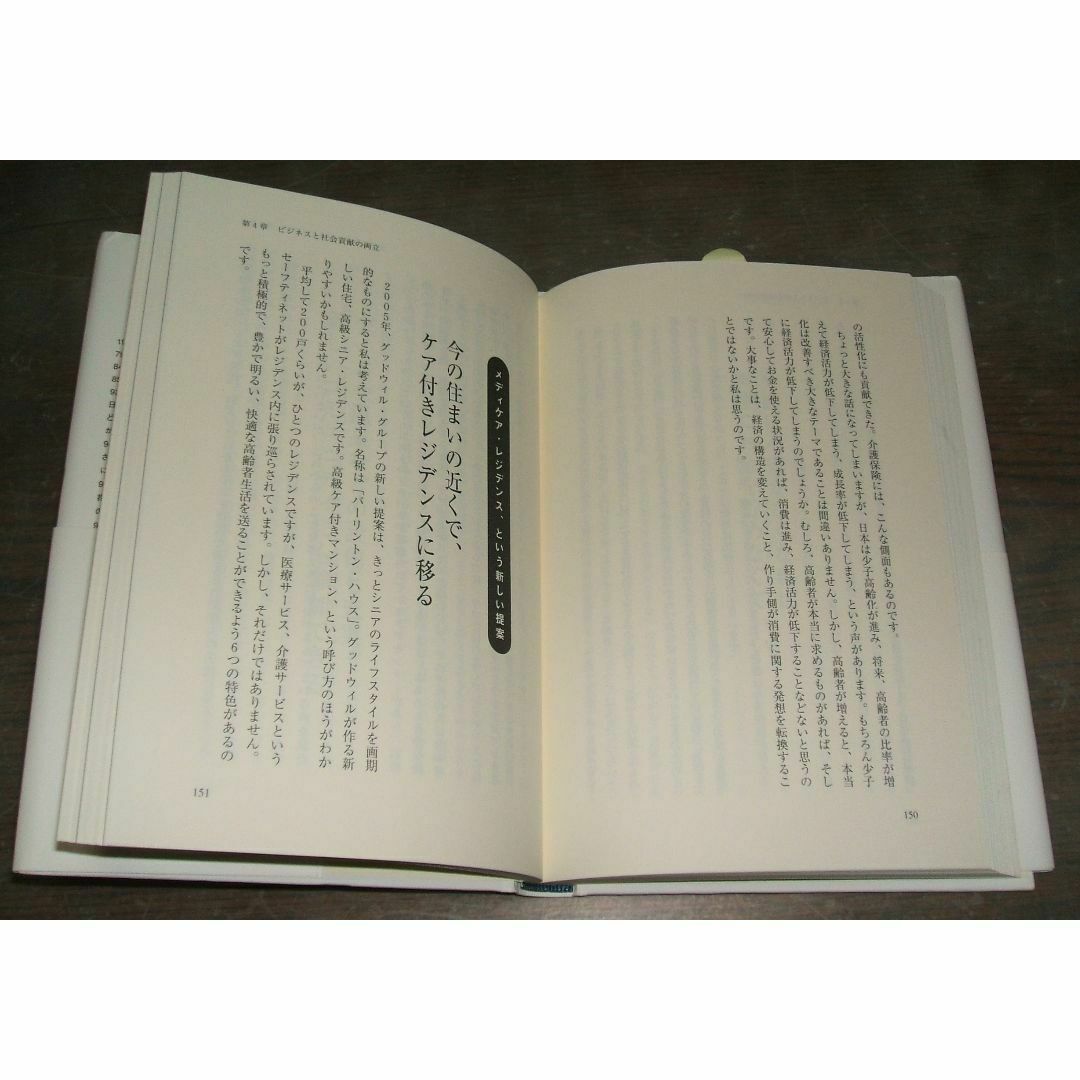 の活性化にも貢献できた。介護保険には、こんな側面もあるのです。
ちょっと大きな話になってしまいますが、日本は少子高齢化が進み、将来、高齢者の比率が増
えて経済活力が低下してしまう、成長率が低下してしまう、という声があります。もちろん少子
化は改善すべき大きなテーマであることは間違いありません。しかし、高齢者が増えると、本当
に経済活力が低下してしまうのでしょうか。むしろ、高齢者が本当に求めるものがあれば、そし
て安心してお金を使える状況があれば、消費は進み、経済活力が低下することなどないと思うの
です。大事なことは、経済の構造を変えていくこと、作り手側が消費に関する発想を転換するこ
とではないかと私は思うのです。
150
第4章 ビジネスと社会貢献の両立
メディケア・レジデンス、という新しい提案
今の住まいの近くで、
ケア付きレジデンスに移る
2005年、グッドウィル・グループの新しい提案は、きっとシニアのライフスタイルを画期
的なものにすると私は考えています。名称は「バーリントン・ハウス」。グッドウィルが作る新
しい住宅、高級シニア・レジデンスです。高級ケア付きマンション、という呼び方のほうがわか
りやすいかもしれません。
平均して200戸くらいが、ひとつのレジデンスですが、医療サービス、介護サービスという
セーフティネットがレジデンス内に張り巡らされています。しかし、それだけではありません。
もっと積極的で、豊かで明るい、快適な高齢者生活を送ることができるよう6つの特色があるの
です。
151